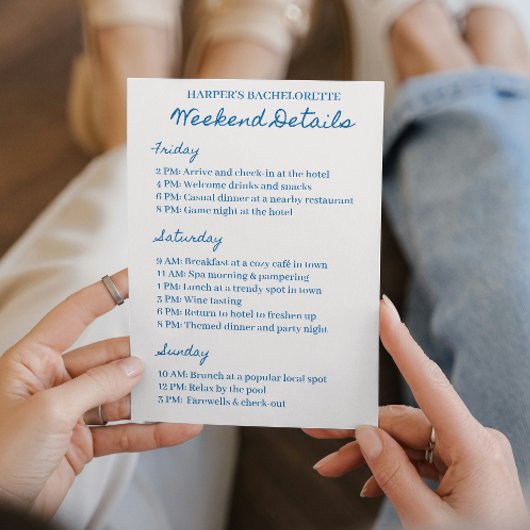 HARPER'S BACHELORETTE
Weekend Details
Friday
2 PM: Arrive and check-in at the hotel
4 PM: Welcome drinks and snacks
6 PM: Casual dinner at a nearby restaurant
8 PM: Game night at the hotel
Saturday
9 AM: Breakfast at a cozy café in town
11 AM: Spa morning & pampering
1 PM: Lunch at a trendy spot in town
3 PM: Wine tasting
6 PM: Return to hotel to freshen up
8 PM: Themed dinner and party night
Sunday
10 AM: Brunch at a popular local spot
12 PM: Relax by the pool
3 PM: Farewells & check-out